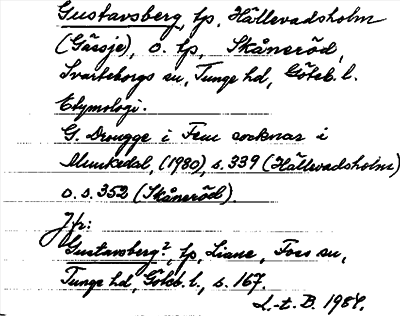 Gustavsberg, lp, Hällevadsholm
(Gässje), o. lp, Skåneröd,
Svarteborgs sn, Tunge hd, Göteb. l.
Etymologi.
G. Drougge i Fem socknar i
Munkedal, (1980), s. 339 (Hällevadsholm)
o. s. 352 (Skåneröd).
Jfr:
Gustavsberg², lp, Liane, Foss sn,
Tunge hd, Göteb. l., s. 167.
L.-t. B. 1984.